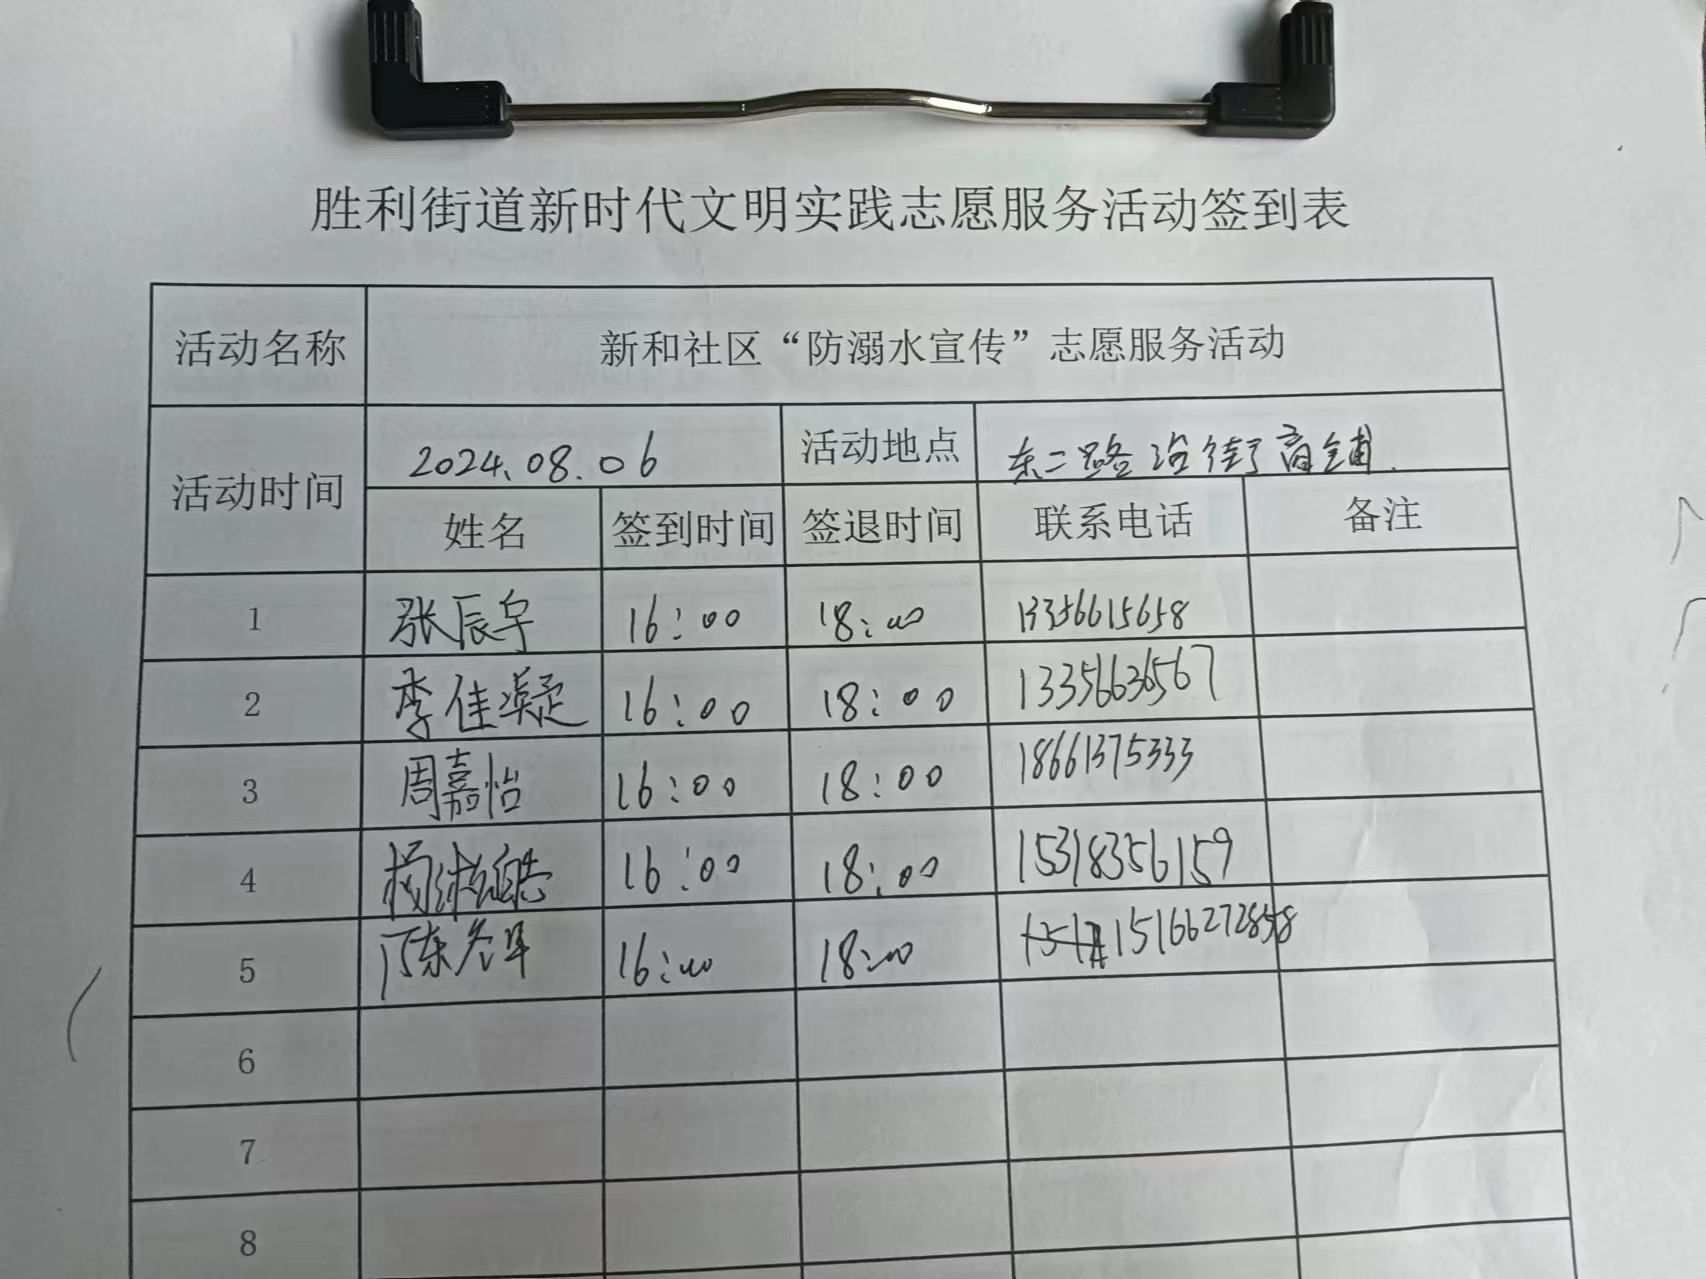 胜利街道新时代文明实践志愿服务活动签到表
活动名称 新和社区“防溺水宣传”志愿服务活动
活动时间 2024.08.06 活动地点 东二路沿街商铺.
姓名 签到时间 签退时间 联系电话 备注
1 张辰宇 16:00 18:00 13356615658
2 李佳凝 16:00 18:00 13356636567
3 周嘉怡 16:00 18:00 18661375333
4 16:00 18:00 15318356159
5 16:00 18:00 15166272858
6
7
8